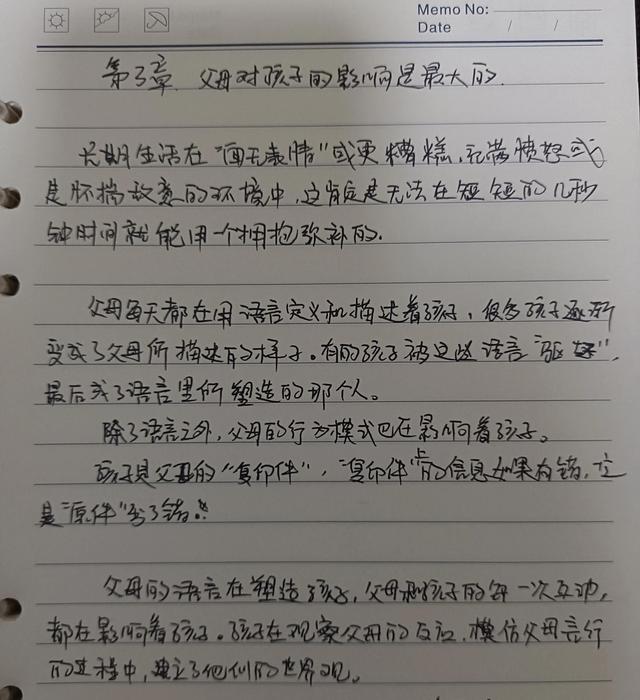 Memo No:
Date / /
第3章 父母对孩子的影响是最大的.
长期生活在"面无表情"或更糟糕,充满愤怒或
是怀揣敌意的环境中,这肯定是无法在短短的几秒
钟时间就能用一个拥抱弥补的.
父母每天都在用语言定义和描述着孩子,很多孩子逐渐
变成了父母所描述的样子。有的孩子被这些语言"驱
最后成了语言里所塑造的那个人。
除了语言之外,父母的行为模式也在影响着孩子。
孩子是父母的"复印件","复印件"上的信息如果有错,定
是"原件"出了错。
父母的语言在塑造孩子,父母和孩子的每一次互动,
都在影响着孩子。孩子在观察父母的反应,模仿父母言行
的过程中,建立了他们的世界观。